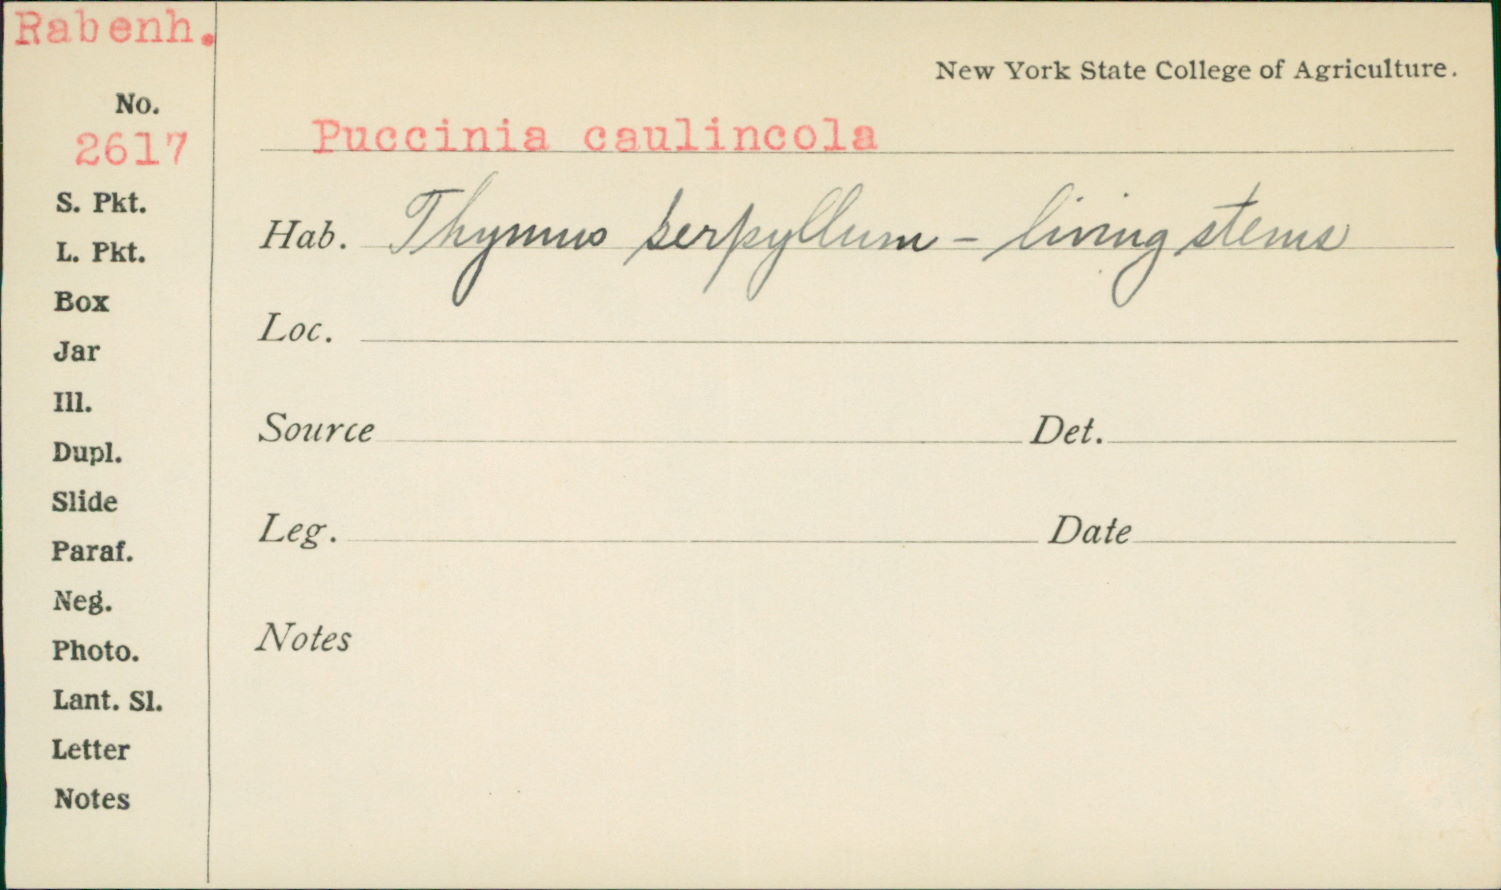 Rabenh.
New York State College of Agriculture.
No.
2617
Puccinia caulincola
S. Pkt.
Hab. Thymus serpyllum - living stems
L. Pkt.
Box
Loc.
Jar
Ill.
Source Det.
Dupl.
Slide
Leg. Date
Paraf.
Neg.
Notes
Photo.
Lant. Sl.
Letter
Notes